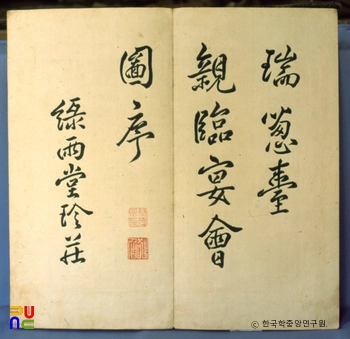 瑞葱臺
親臨宴會
圖序
綠雨堂珍莊
ⓒ 한국학중앙연구원